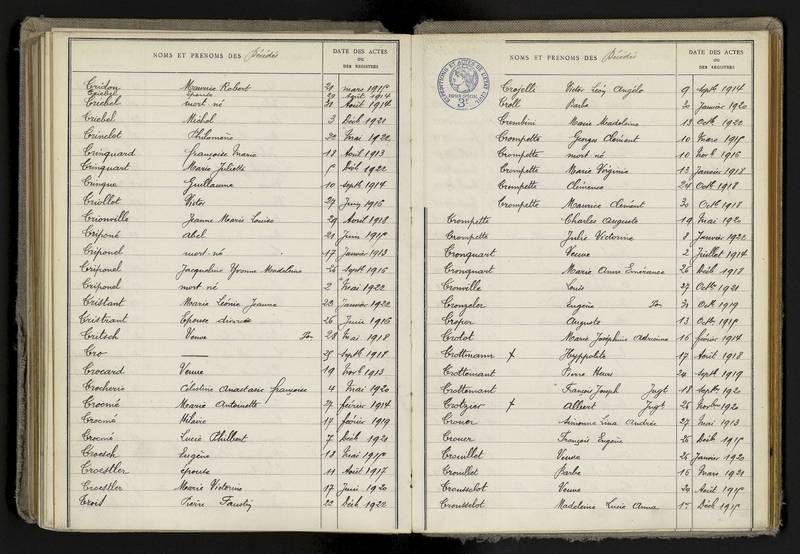 NOMS ET PRENOMS DES Décédés
DATE DES ACTES
OU
DES REGISTRES
Cridon Maurice Robert 21 mars 1915
Criebel Epouse 29 Août 1914
Criebel mort né 31 Août 1914
Criebel Michel 3 Déch 1921
Crinelot Philomène 22 Mai 1922
Cringuard françoise Marie 18 Avril 1913
Cringuart Marie Juliette Avril 1922
Cringue Guillaume 10 Septh 1914
Criollot Victor 27 Juin 1916
Crionville Jeanne Marie Louise 29 Avril 1918
Criponé Abel 21 Juin 1915
Criponel mort né 17 Janvier 1913
Criponel Jacqueline Yvonne Madeleine 26 Septh 1916
Criponel mort né 2 Mai 1922
Cristant Marie Léonie Jeanne 23 Janvier 1922
Cristrant Epouse divorcée 26 Juin 1916
Critsch Veuve Ton 28 Mai 1918
Cro — 25 Septh 1918
Crocard Veuve 19 Novh 1913
Crocherie Célestine Anastasie françoise 4 Mai 1920
Croené Marie Antoinette 27 février 1914
Croené Hilaire 17 février 1919
Croené Lucie 7 Déch 1920
Croesch Eugène 13 Mai 1915
Croestler épouse 11 Août 1917
Croestler Marie Victorine 17 Juin 1920
Croit Pierre 22 Déch 1922
NOMS ET PRENOMS DES Décédés
DATE DES ACTES
OU
DES REGISTRES
EXPEDITIONS ET ACTES DE L'ETAT CIVIL
Crojelle Victor Léon Angèle 9 Septh 1914
Croll Barbe 20 Janvier 1920
Crembini Marie Madeleine 13 Octh 1922
Crompette Georges Clément 10 Mars 1915
Crompette mort né 10 Novh 1916
Crompette Marie Virginie 13 Janvier 1918
Crompette Clémence 24 Octh 1918
Crompette Maurice Clément 30 Octh 1918
Crompette Charles Auguste 19 Mai 1920
Crompette Julie Victorine 8 Janvier 1922
Cronquart Veuve 2 Juillet 1914
Cronquart Marie Anne Emérance 26 Déch 1918
Cronville Louis 27 Octh 1921
Crongeler Eugène Ton 31 Octh 1919
Croper Auguste 13 Octh 1915
Crotot Marie Joséphine Adrienne 16 février 1914
Crottmann + Hyppolite 17 Août 1918
Crottemant Pierre Henri 24 Septh 1919
Crottemant François Joseph Jugt 18 Septh 1920
Crotzier + Albert Jugt 25 Novh 1920
Crouer Simonne Lina Andrée 27 Mai 1913
Crouer François Eugène 26 Déch 1915
Crouillot Veuve 25 Janvier 1920
Croullot Barbe 16 Mars 1921
Crousselot Veuve 20 Août 1915
Crousselot Madeleine Lucie Anna Déch 1915